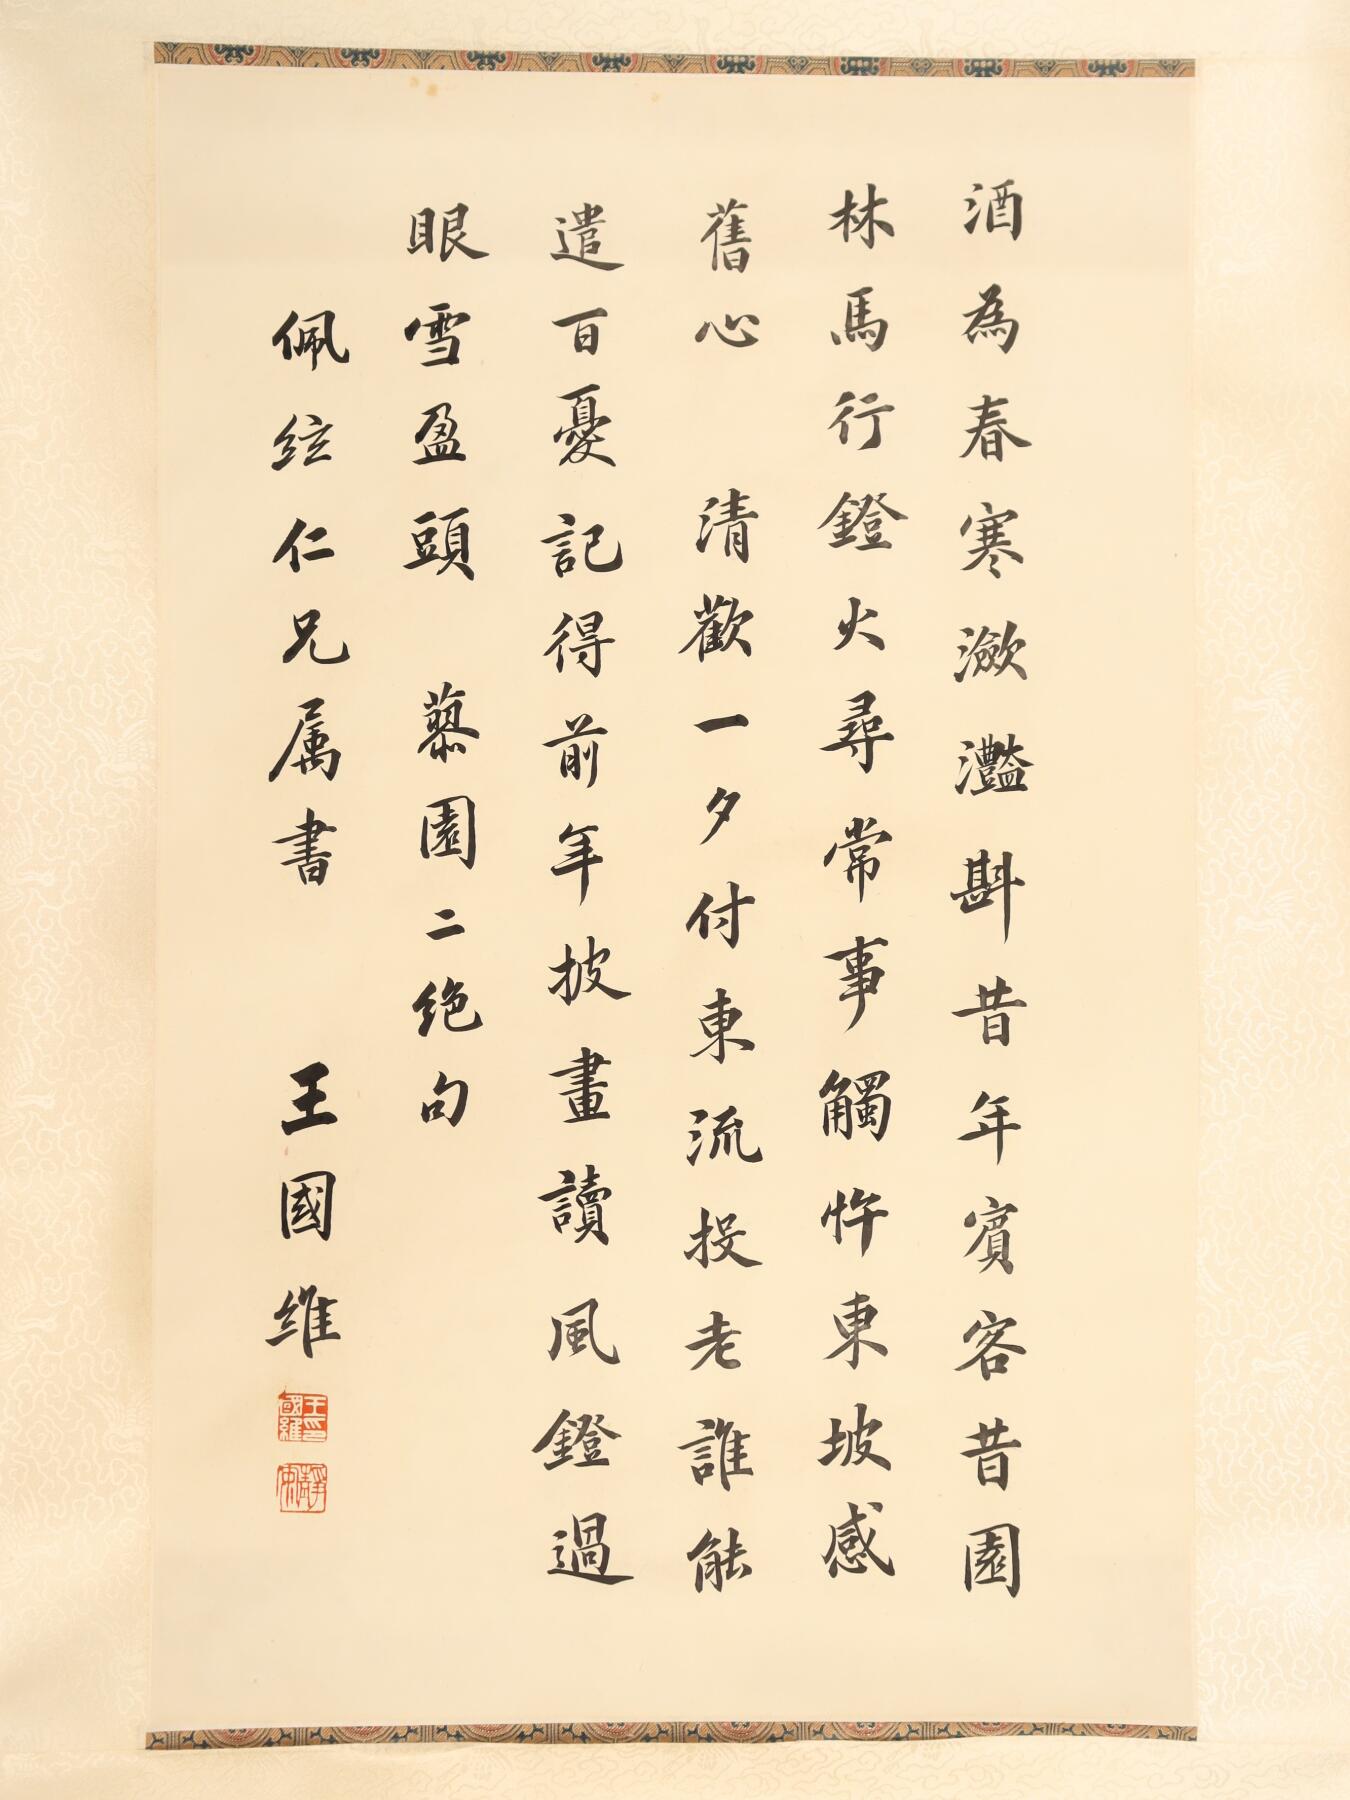 酒為春寒瀲灩斟昔年賓客昔園
林馬行鐙火尋常事觸忤東坡感
舊心　清歡一夕付東流投老誰能
遣百憂記得前年披畫讀風鐙過
眼雪盈頭　藝園二絶句
佩紘仁兄属書　王國維
王國維印
靜安